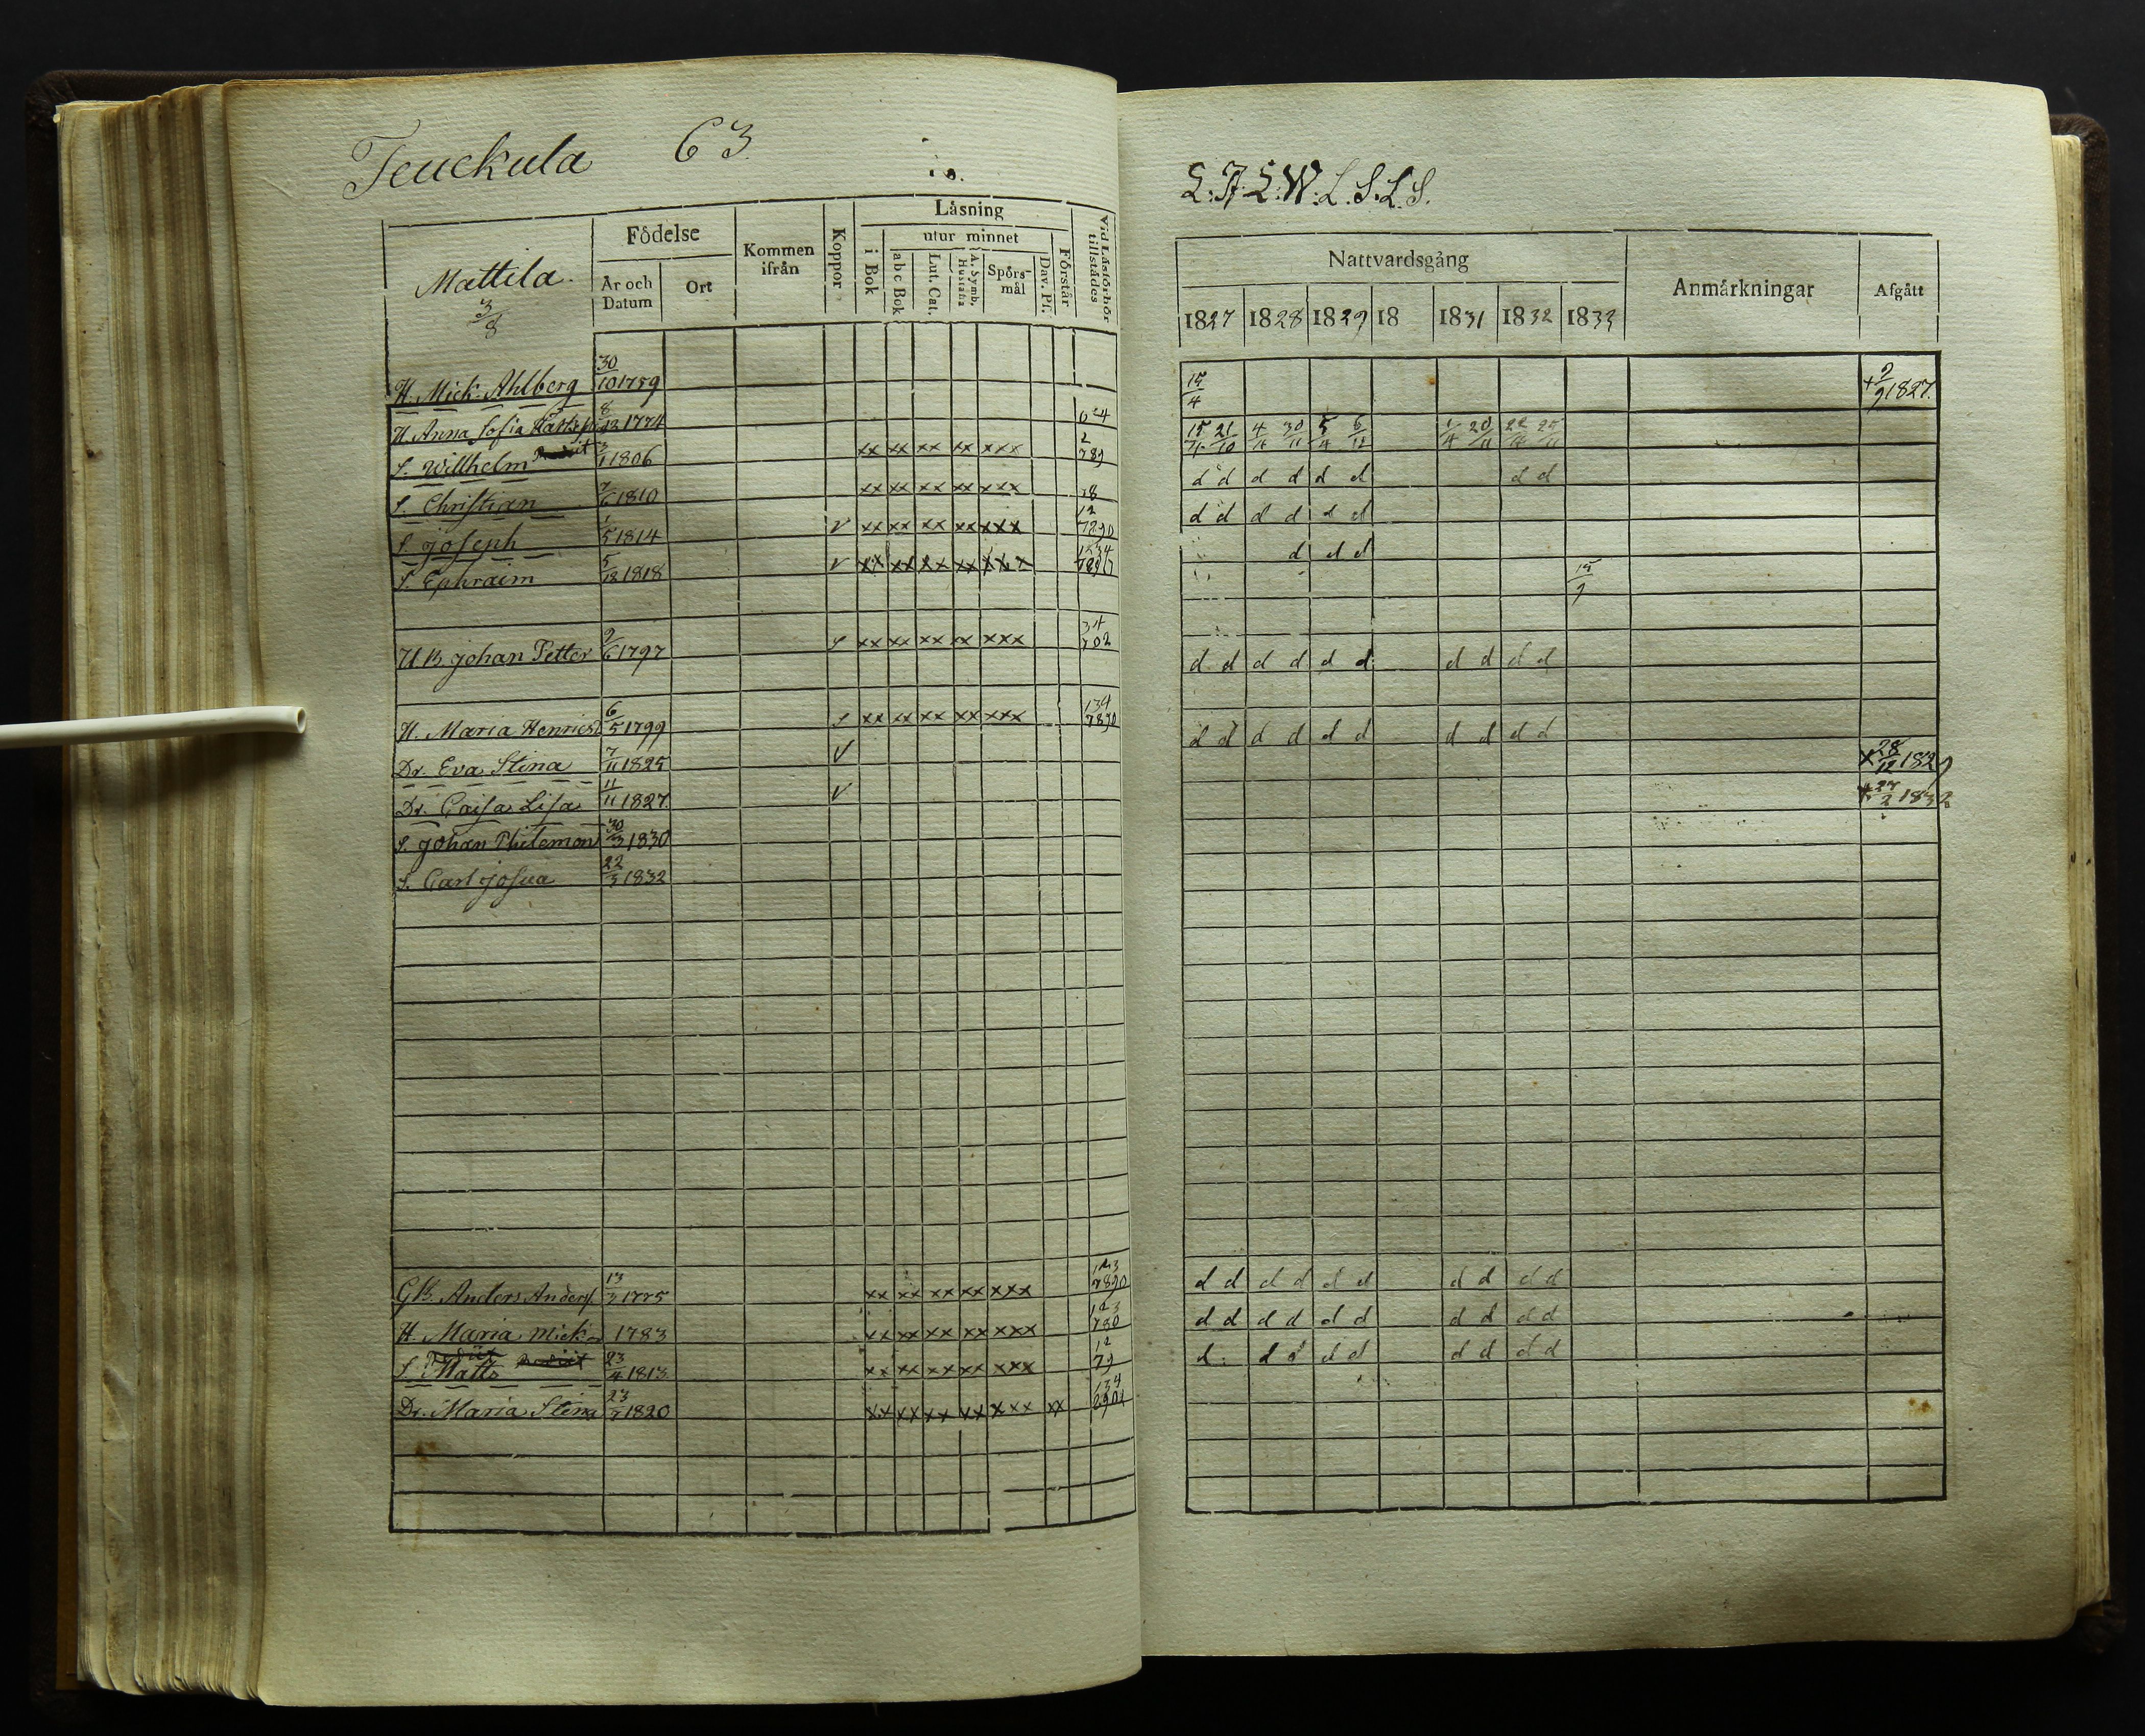 Teuckula 63
Mattila
3/8
Födelse
År och Datum
Ort
Kommen ifrån
Koppor
Läsning
i Bok
utur minnet
abc Bok
Lut. Cat.
A. Symb. Hustafla
Spörs-mål
Dav. Ps.
Förstår
Vid Läsförhör tillstädes
H. Mick. Ahlberg 30/10 1759
H. Anna Sofia 1774
S. Willhelm 3/1 1806 xx xx xx xx xxx 2 789
S. Christian 7/6 1810 xx xx xx xx xxx 18
S. Joseph 1/5 1814 v xx xx xx xx xxx 12 7890
S. Ephraim 5/12 1818 v xx xx xx xx xxx
H B. Johan Petter 9/6 1797 s xx xx xx xx xxx 34 702
H. Maria Henricsd 6/5 1799 s xx xx xx xx xxx 134 7890
Dr. Eva Stina 7/11 1825 v
Dr. Caisa Lisa 11/11 1827 v
S. Johan Philemon 30/3 1830
S. Carl Josua 22/3 1832
GB. Anders Anders. 13/3 1775 xx xx xx xx xxx 123 7890
H. Maria Mick. 1783 xx xx xx xx xxx 123 780
S. Matts 23/4 1813 xx xx xx xx xxx 12 79
Dr. Maria Stina 23/7 1820 xx xx xx xx xxx xx 134 8901
L. S. L. S.
Nattvardsgång
Anmärkningar
Afgått
1827 1828 1829 18 1831 1832 1833
15/4 + 9/9 1827.
15/4 21/10 4/4 30/11 5/4 6/12 1/4 20/11
d d d d d d d d
d d d d d d
d d d
15/9
d d d d d d d d d d
d d d d d d d d d d
x 28/12 1829
+ 27/2 1832
d d d d d d d d d d
d d d d d d d d d d
d d d d d d d d d